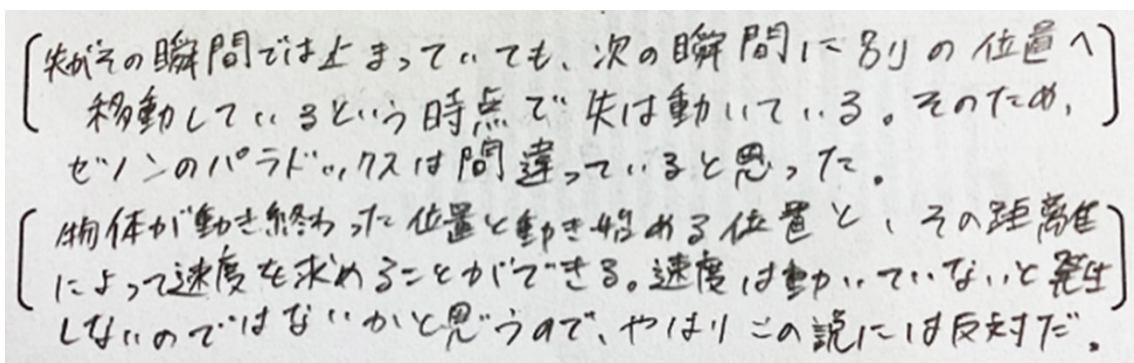 矢がその瞬間では止まっていても、次の瞬間に別の位置へ
移動しているという時点で矢は動いている。そのため、
ゼノンのパラドックスは間違っていると思った。
物体が動き終わった位置と動き始める位置と、その距離
によって速度を求めることができる。速度は動いていないと発生
しないのではないかと思うので、やはりこの説には反対だ。